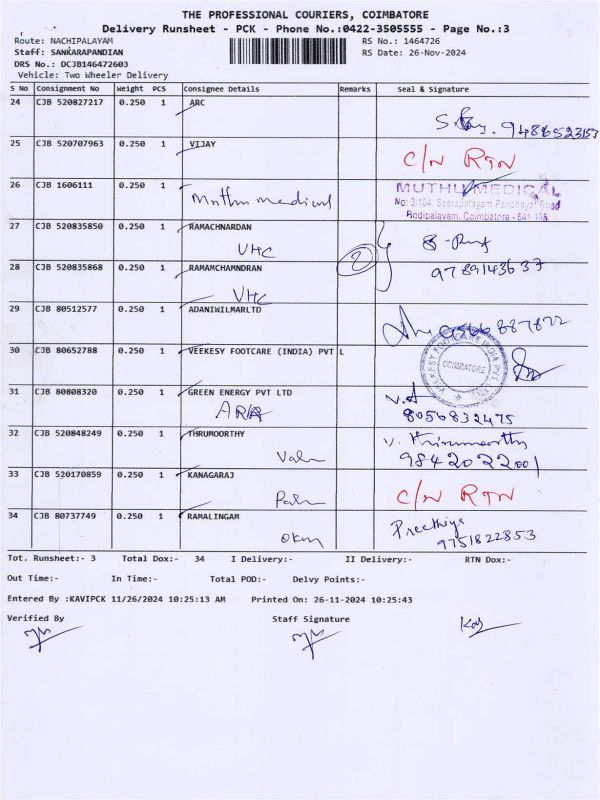 THE PROFESSIONAL COURIERS, COIMBATORE
Delivery Runsheet - PCK - Phone No.:0422-3505555 - Page No.:3
Route: NACHIPALAYAM RS No.: 1464726
Staff: SANKARAPANDIAN RS Date: 26-Nov-2024
DRS No.: DCJB146472603
Vehicle: Two Wheeler Delivery
S No Consignment No Weight PCS Consignee Details Remarks Seal & Signature
24 CJB 520827217 0.250 1 ARC
9486523157
25 CJB 520707963 0.250 1 VIJAY
C/N RTN
26 CJB 1606111 0.250 1 Muthu medical
MUTHU MEDICAL
No: 3/104, Seerapalayam Panchayat Road
Bodipalayam, Coimbatore - 641 105
27 CJB 520835850 0.250 1 RAMACHNARDAN
VHC
2
28 CJB 520835868 0.250 1 RAMAMCHAMNDRAN
9789143637
VHC
29 CJB 80512577 0.250 1 ADANIWILMARLTD
30 CJB 80652788 0.250 1 VEEKESY FOOTCARE (INDIA) PVT L
COIMBATORE
31 CJB 80808320 0.250 1 GREEN ENERGY PVT LTD
8056832475
32 CJB 520848249 0.250 1 THRUMOORTHY
V. Thirumoorthy
9842022001
33 CJB 520170859 0.250 1 KANAGARAJ
C/N RTN
34 CJB 80737749 0.250 1 RAMALINGAM
Preethiya
9751822853
Tot. Runsheet:- 3 Total Dox:- 34 I Delivery:- II Delivery:- RTN Dox:-
Out Time:- In Time:- Total POD:- Delvy Points:-
Entered By :KAVIPCK 11/26/2024 10:25:13 AM Printed On: 26-11-2024 10:25:43
Verified By Staff Signature